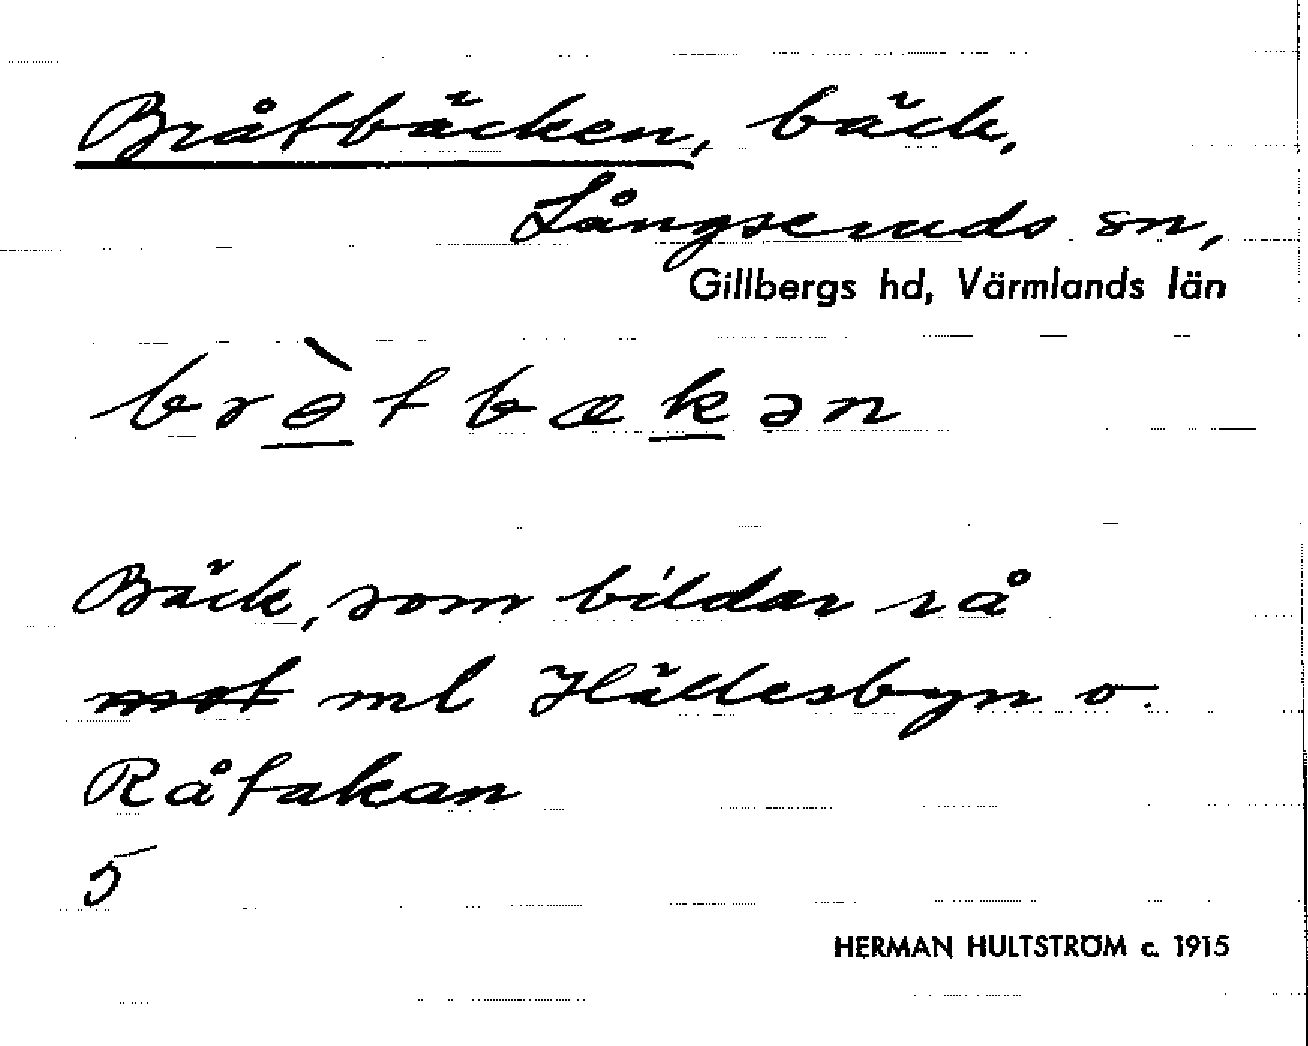 Bråtbäcken, bäck,
Långseruds sn,
Gillbergs hd, Värmlands län
brɵ̀tbækən
Bäck, som bildar rå
mot ml Hällesbyn o.
Råtakan
5
HERMAN HULTSTRÖM c. 1915